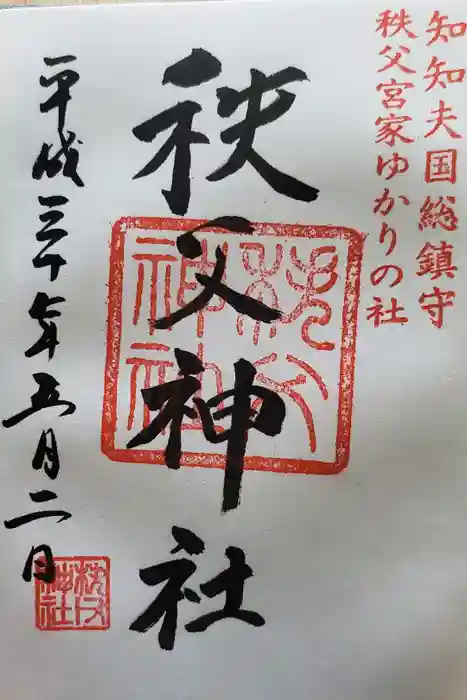 知知夫国総鎮守
秩父宮家ゆかりの社
秩父神社
秩父
神社
平成三十年五月二日
秩父
神社